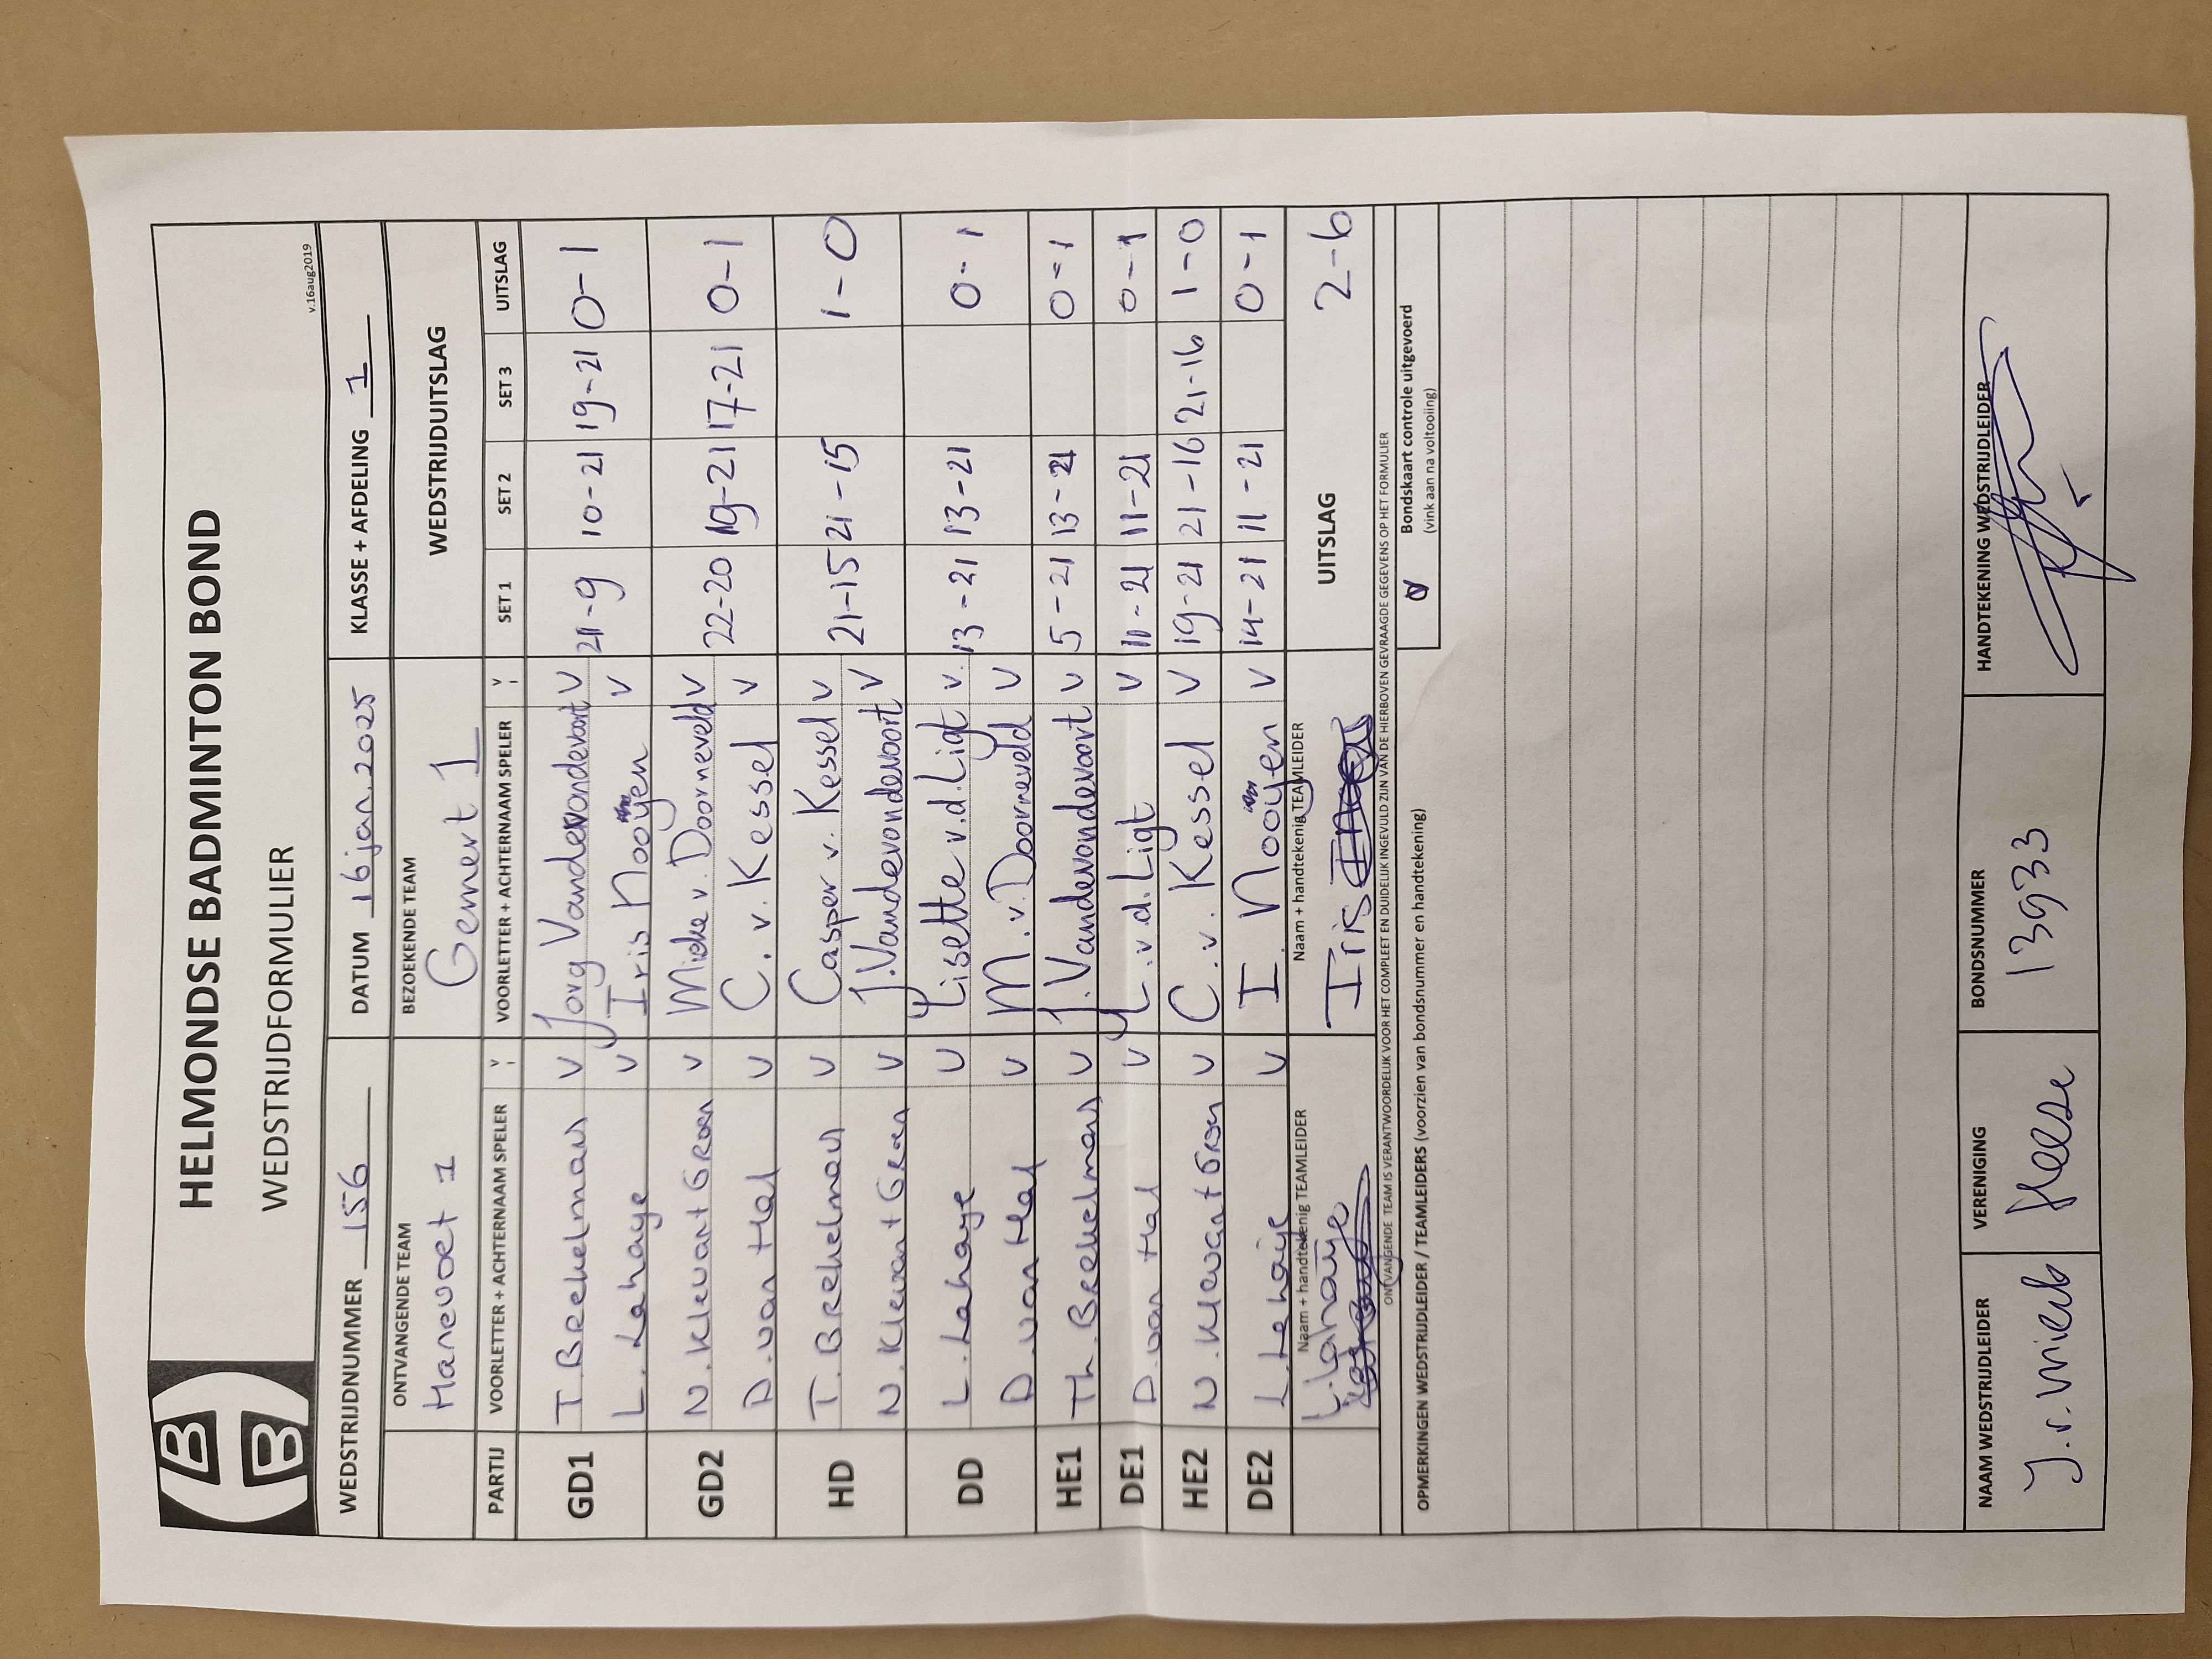 HELMONDSE BADMINTON BOND
WEDSTRIJDFORMULIER
v.16aug2019
WEDSTRIJDNUMMER 156 DATUM 16 jan. 2025 KLASSE + AFDELING 1
ONTVANGENDE TEAM BEZOEKENDE TEAM WEDSTRIJDUITSLAG
Hanevoet 1 Gemert 1
PARTIJ VOORLETTER + ACHTERNAAM SPELER V VOORLETTER + ACHTERNAAM SPELER V SET 1 SET 2 SET 3 UITSLAG
GD1 T. Breekelmans V Jorg Vandevondevoort V 21-9 10-21 19-21 0-1
L. Lahaye V Iris Nooijen V
GD2 N. Klevant Groen V Mieke v. Doorneveld V 22-20 19-21 17-21 0-1
D. van Hal V C. v. Kessel V
HD T. Breekelmans V Casper v. Kessel V 21-15 21-15 1-0
N. Klevant Groen V J. Vandevondevoort V
DD L. Lahaye V Lisette v.d. Ligt V 13-21 13-21 0-1
D. van Hal V M. v. Doorneveld V
HE1 Th. Breekelmans V J. Vandevondevoort V 5-21 13-21 0-1
DE1 D. van Hal V L. v.d. Ligt V 11-21 11-21 0-1
HE2 N. Klevant Groen V C. v. Kessel V 19-21 21-16 21-16 1-0
DE2 L. Lahaye V I. Nooijen V 14-21 11-21 0-1
Naam + handtekenig TEAMLEIDER Naam + handtekenig TEAMLEIDER UITSLAG 2-6
L. Lahaye Iris
ONTVANGENDE TEAM IS VERANTWOORDELIJK VOOR HET COMPLEET EN DUIDELIJK INGEVULD ZIJN VAN DE HIERBOVEN GEVRAAGDE GEGEVENS OP HET FORMULIER
OPMERKINGEN WEDSTRIJDLEIDER / TEAMLEIDERS (voorzien van bondsnummer en handtekening)
Bondskaart controle uitgevoerd
(vink aan na voltooiing)
NAAM WEDSTRIJDLEIDER VERENIGING BONDSNUMMER HANDTEKENING WEDSTRIJDLEIDER
13933